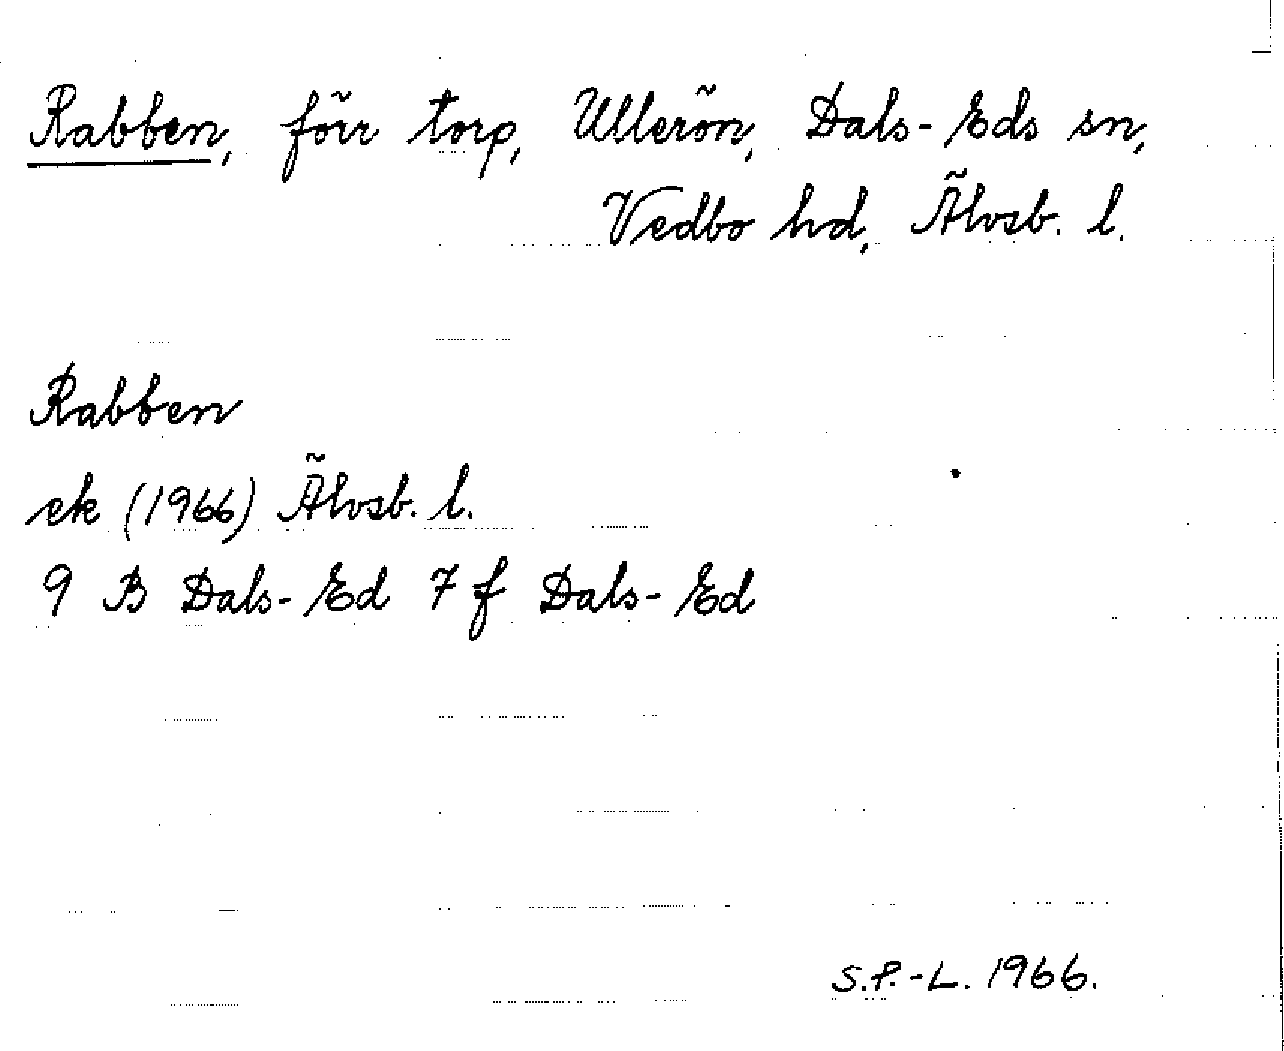 Rabben, förr torp, Ullerön, Dals-Eds sn,
Vedbo hd, Älvsb. l.
Rabben
ek (1966) Älvsb. l.
9 B Dals-Ed 7 f Dals-Ed
S.P.-L. 1966.